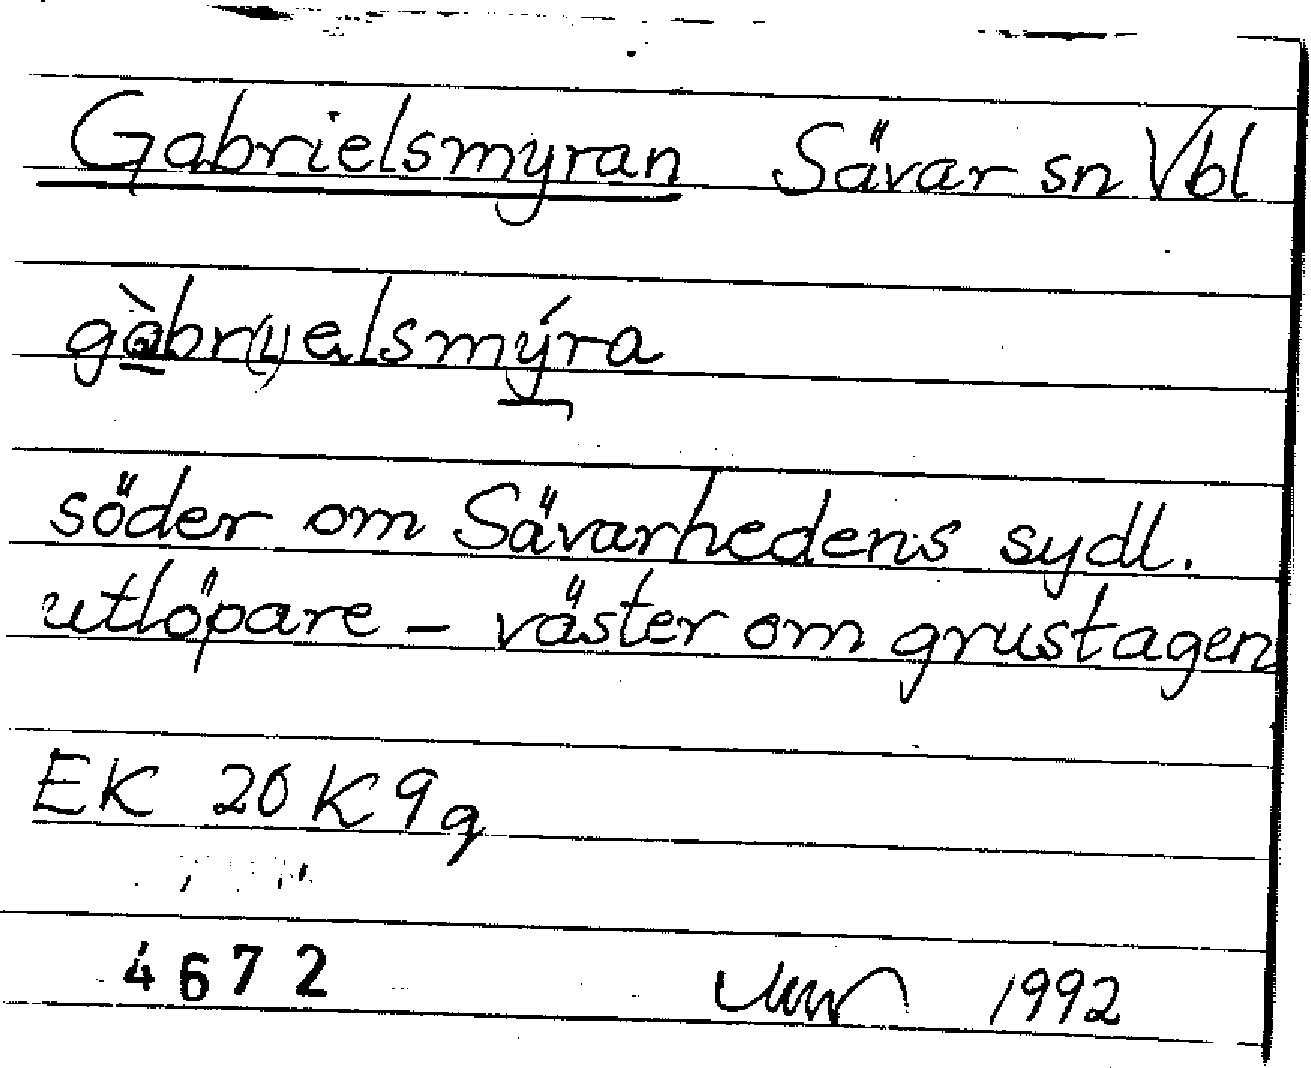 Gabrielsmyran Sävar sn Vbl
gàbr(i)elsmýra
söder om Sävarhedens sydl.
utlöpare – väster om grustagen
EK 20K 9g
4672 1992